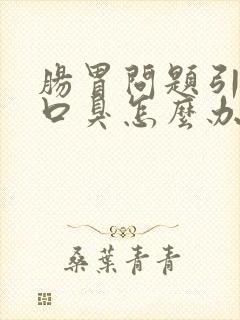 腸胃問題引
口臭怎麼办
桑葉青青